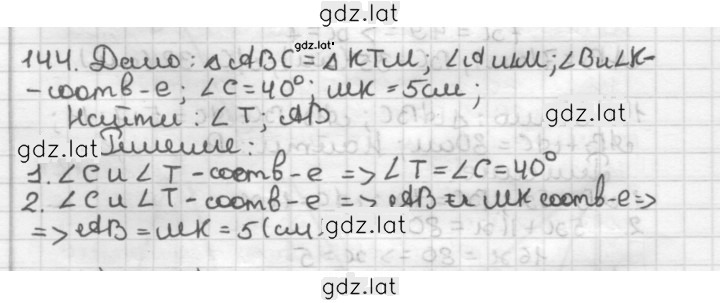 gdz.lat
gdz.lat
144. Дано: △ABC = △KTM; ∠A и ∠M; ∠B и ∠K-
-соотв-е; ∠C = 40°; MK = 5 см;
gdz.lat
Найти: ∠T; AB
gdz.lat Решение:
1. ∠C и ∠T - соотв-е => ∠T = ∠C = 40°
2. ∠C и ∠T - соотв-е => AB и MK соотв-е =>
gdz.lat
=> AB = MK = 5 (см).
gdz.lat
gdz.lat